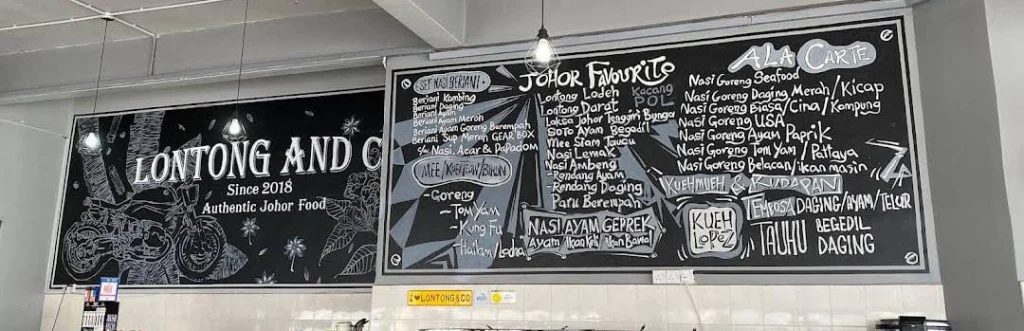 LONTONG AND C
Since 2018
Authentic Johor Food
SET NASI BERIANI
Beriani Kambing
Beriani Daging
Beriani Ayam
Beriani Ayam Merah
Beriani Ayam Goreng Berempah
Beriani Sup Merah GEAR BOX
Nasi, Acar & Papadom
MEE/KUETIAW/BIHUN
-Goreng
-Tom Yam
-Kung Fu
-Hailam/Ladna
JOHOR FAVOURITE
Lontong Lodeh
Lontong Darat
Kacang
POL
Laksa Johor Tenggiri Bunga
Soto Ayam Begedil
Mee Siam Taucu
Nasi Lemak
Nasi Ambeng
-Rendang Ayam
-Rendang Daging
Paru Berempah
NASI AYAM GEPREK
Ayam Ikan Keli Ikan Bawal
ALA CARTE
Nasi Goreng Seafood
Nasi Goreng Daging Merah/Kicap
Nasi Goreng Biasa/Cina/Kampung
Nasi Goreng USA
Nasi Goreng Ayam Paprik
Nasi Goreng Tom Yam/Pattaya
Nasi Goreng Belacan/ikan masin
KUEHMUEH & KUDAPAN
KUEH
LOPEZ
TEMROSA DAGING/AYAM/TELUR
TAUHU BEGEDIL
DAGING
I ♥ LONTONG&CO